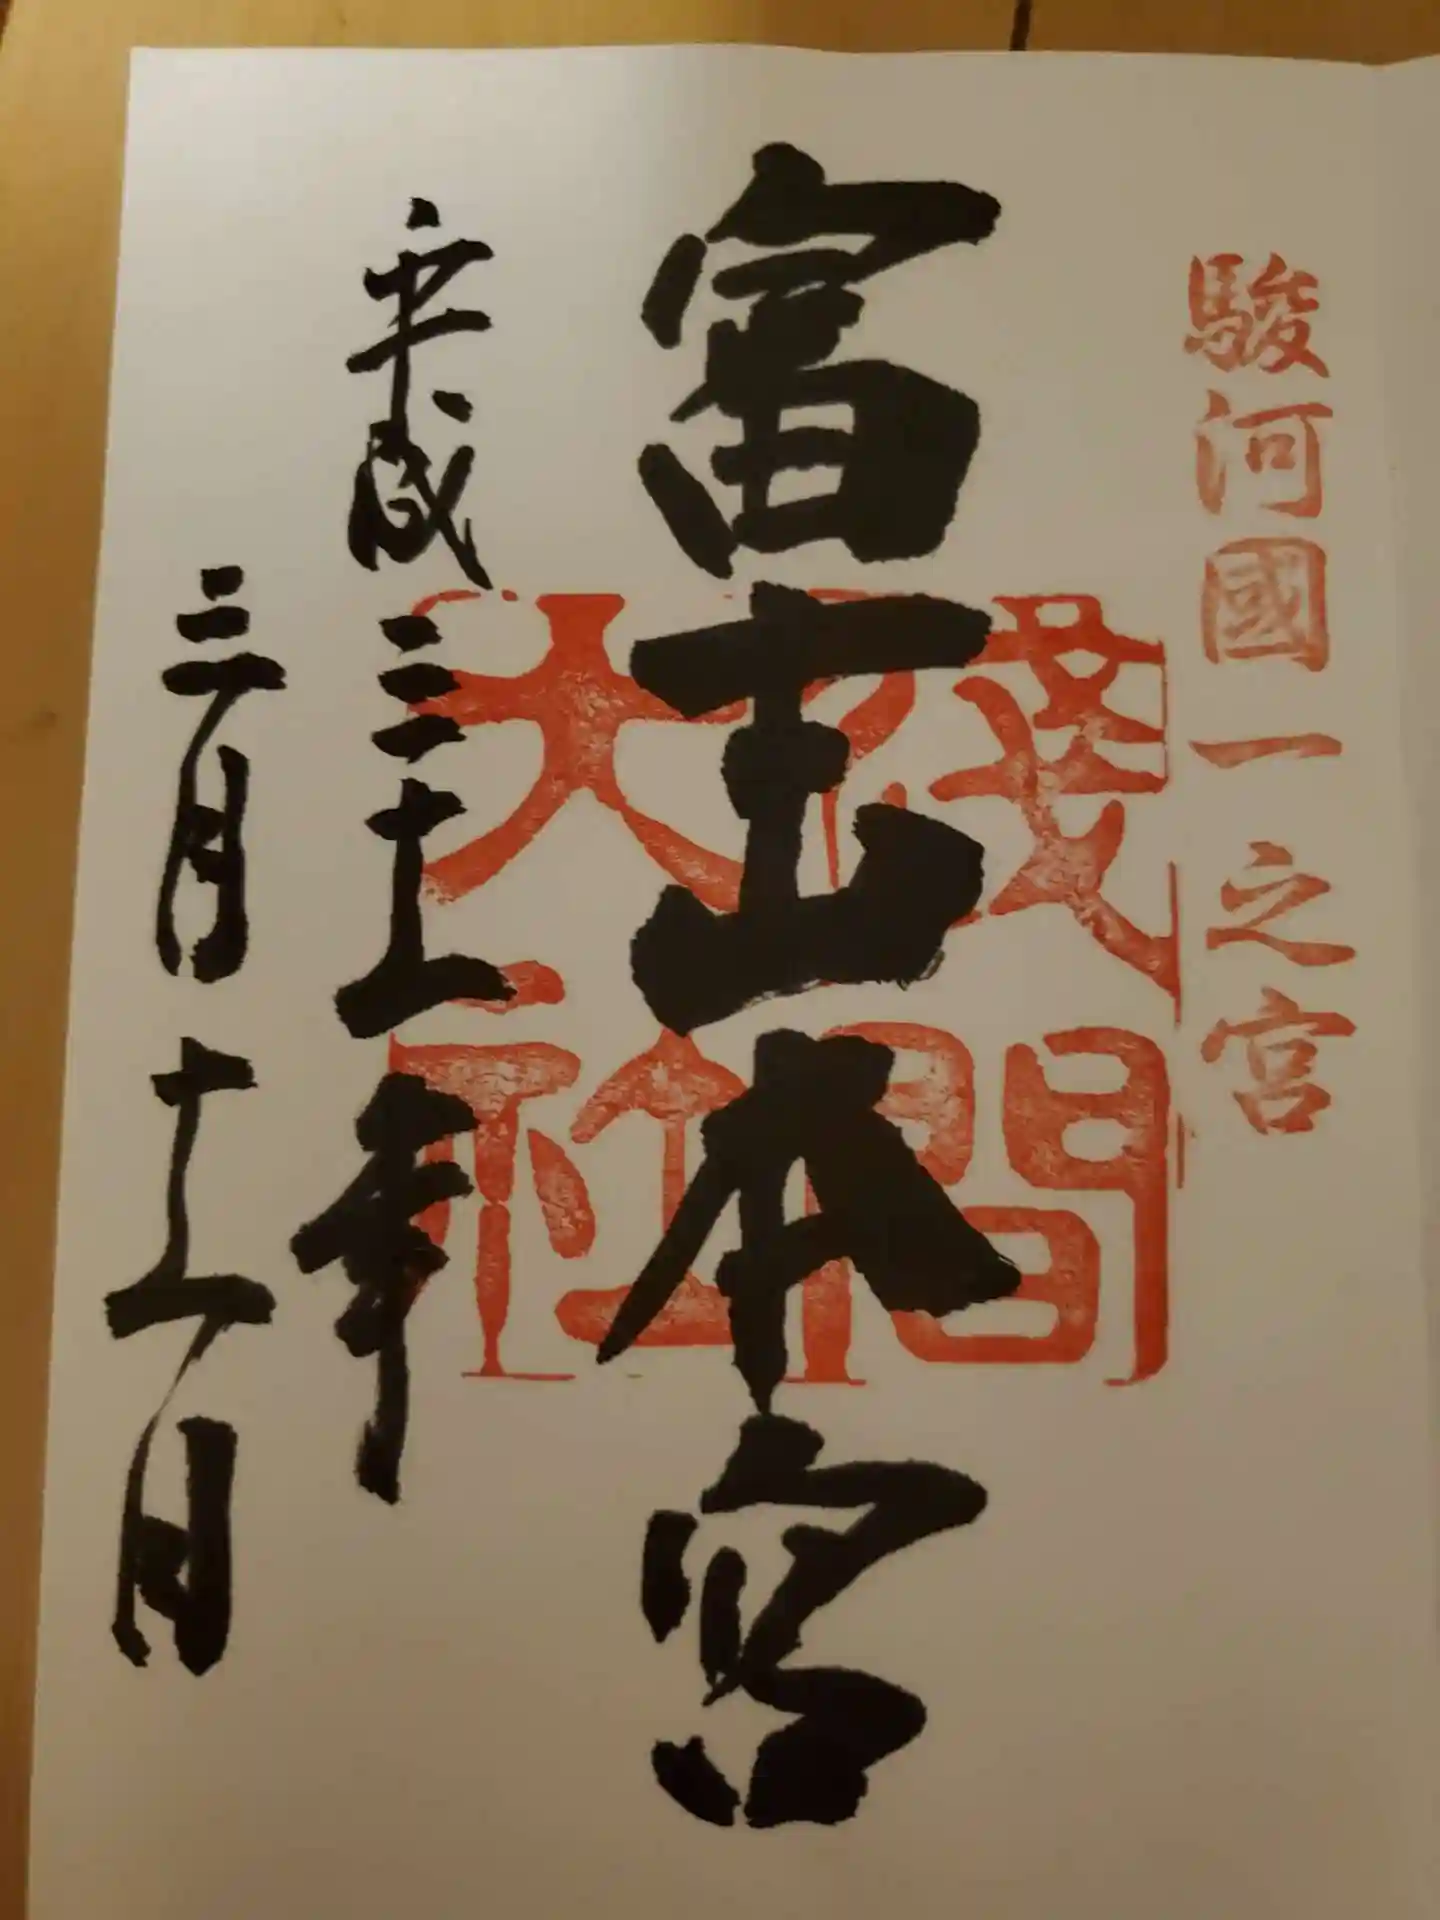 駿河國一之宮
富士山本宮
淺間大社
平成三十一年
三月十一日